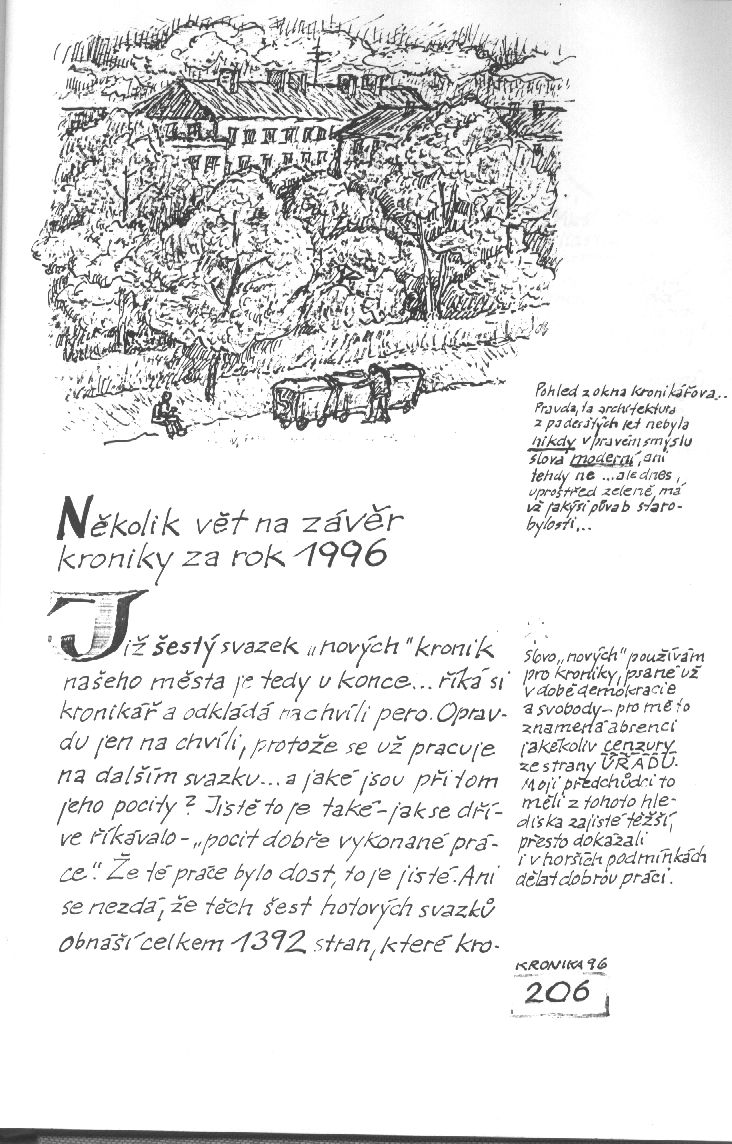 Pohled z okna kronikářova...
Pravda, ta architektura
z padesátých let nebyla
nikdy v pravém smyslu
slova moderní, ani
tehdy ne ... ale dnes,
uprostřed zeleně, má
už jakýsi půvab staro-
bylosti,..
Několik vět na závěr
kroniky za rok 1996
Již šestý svazek „nových" kronik
našeho města je tedy u konce... říká si
kronikář a odkládá na chvíli pero. Oprav-
du jen na chvíli, protože se už pracuje
na dalším svazku... a jaké jsou při tom
jeho pocity? Jistě to je také - jak se dří-
ve říkávalo - „pocit dobře vykonané prá-
ce". Že té práce bylo dost, to je jisté. Ani
se nezdá, že těch šest hotových svazků
obnáší celkem 1392 stran, které kro-
Slovo „nových" používám
pro kroniky, psané už
v době demokracie
a svobody - pro mě to
znamená absenci
jakékoliv cenzury
ze strany ÚŘADU.
Moji předchůdci to
měli z tohoto hle-
diska zajisté těžší,
přesto dokázali
i v horších podmínkách
dělat dobrou práci.
KRONIKA 96
206